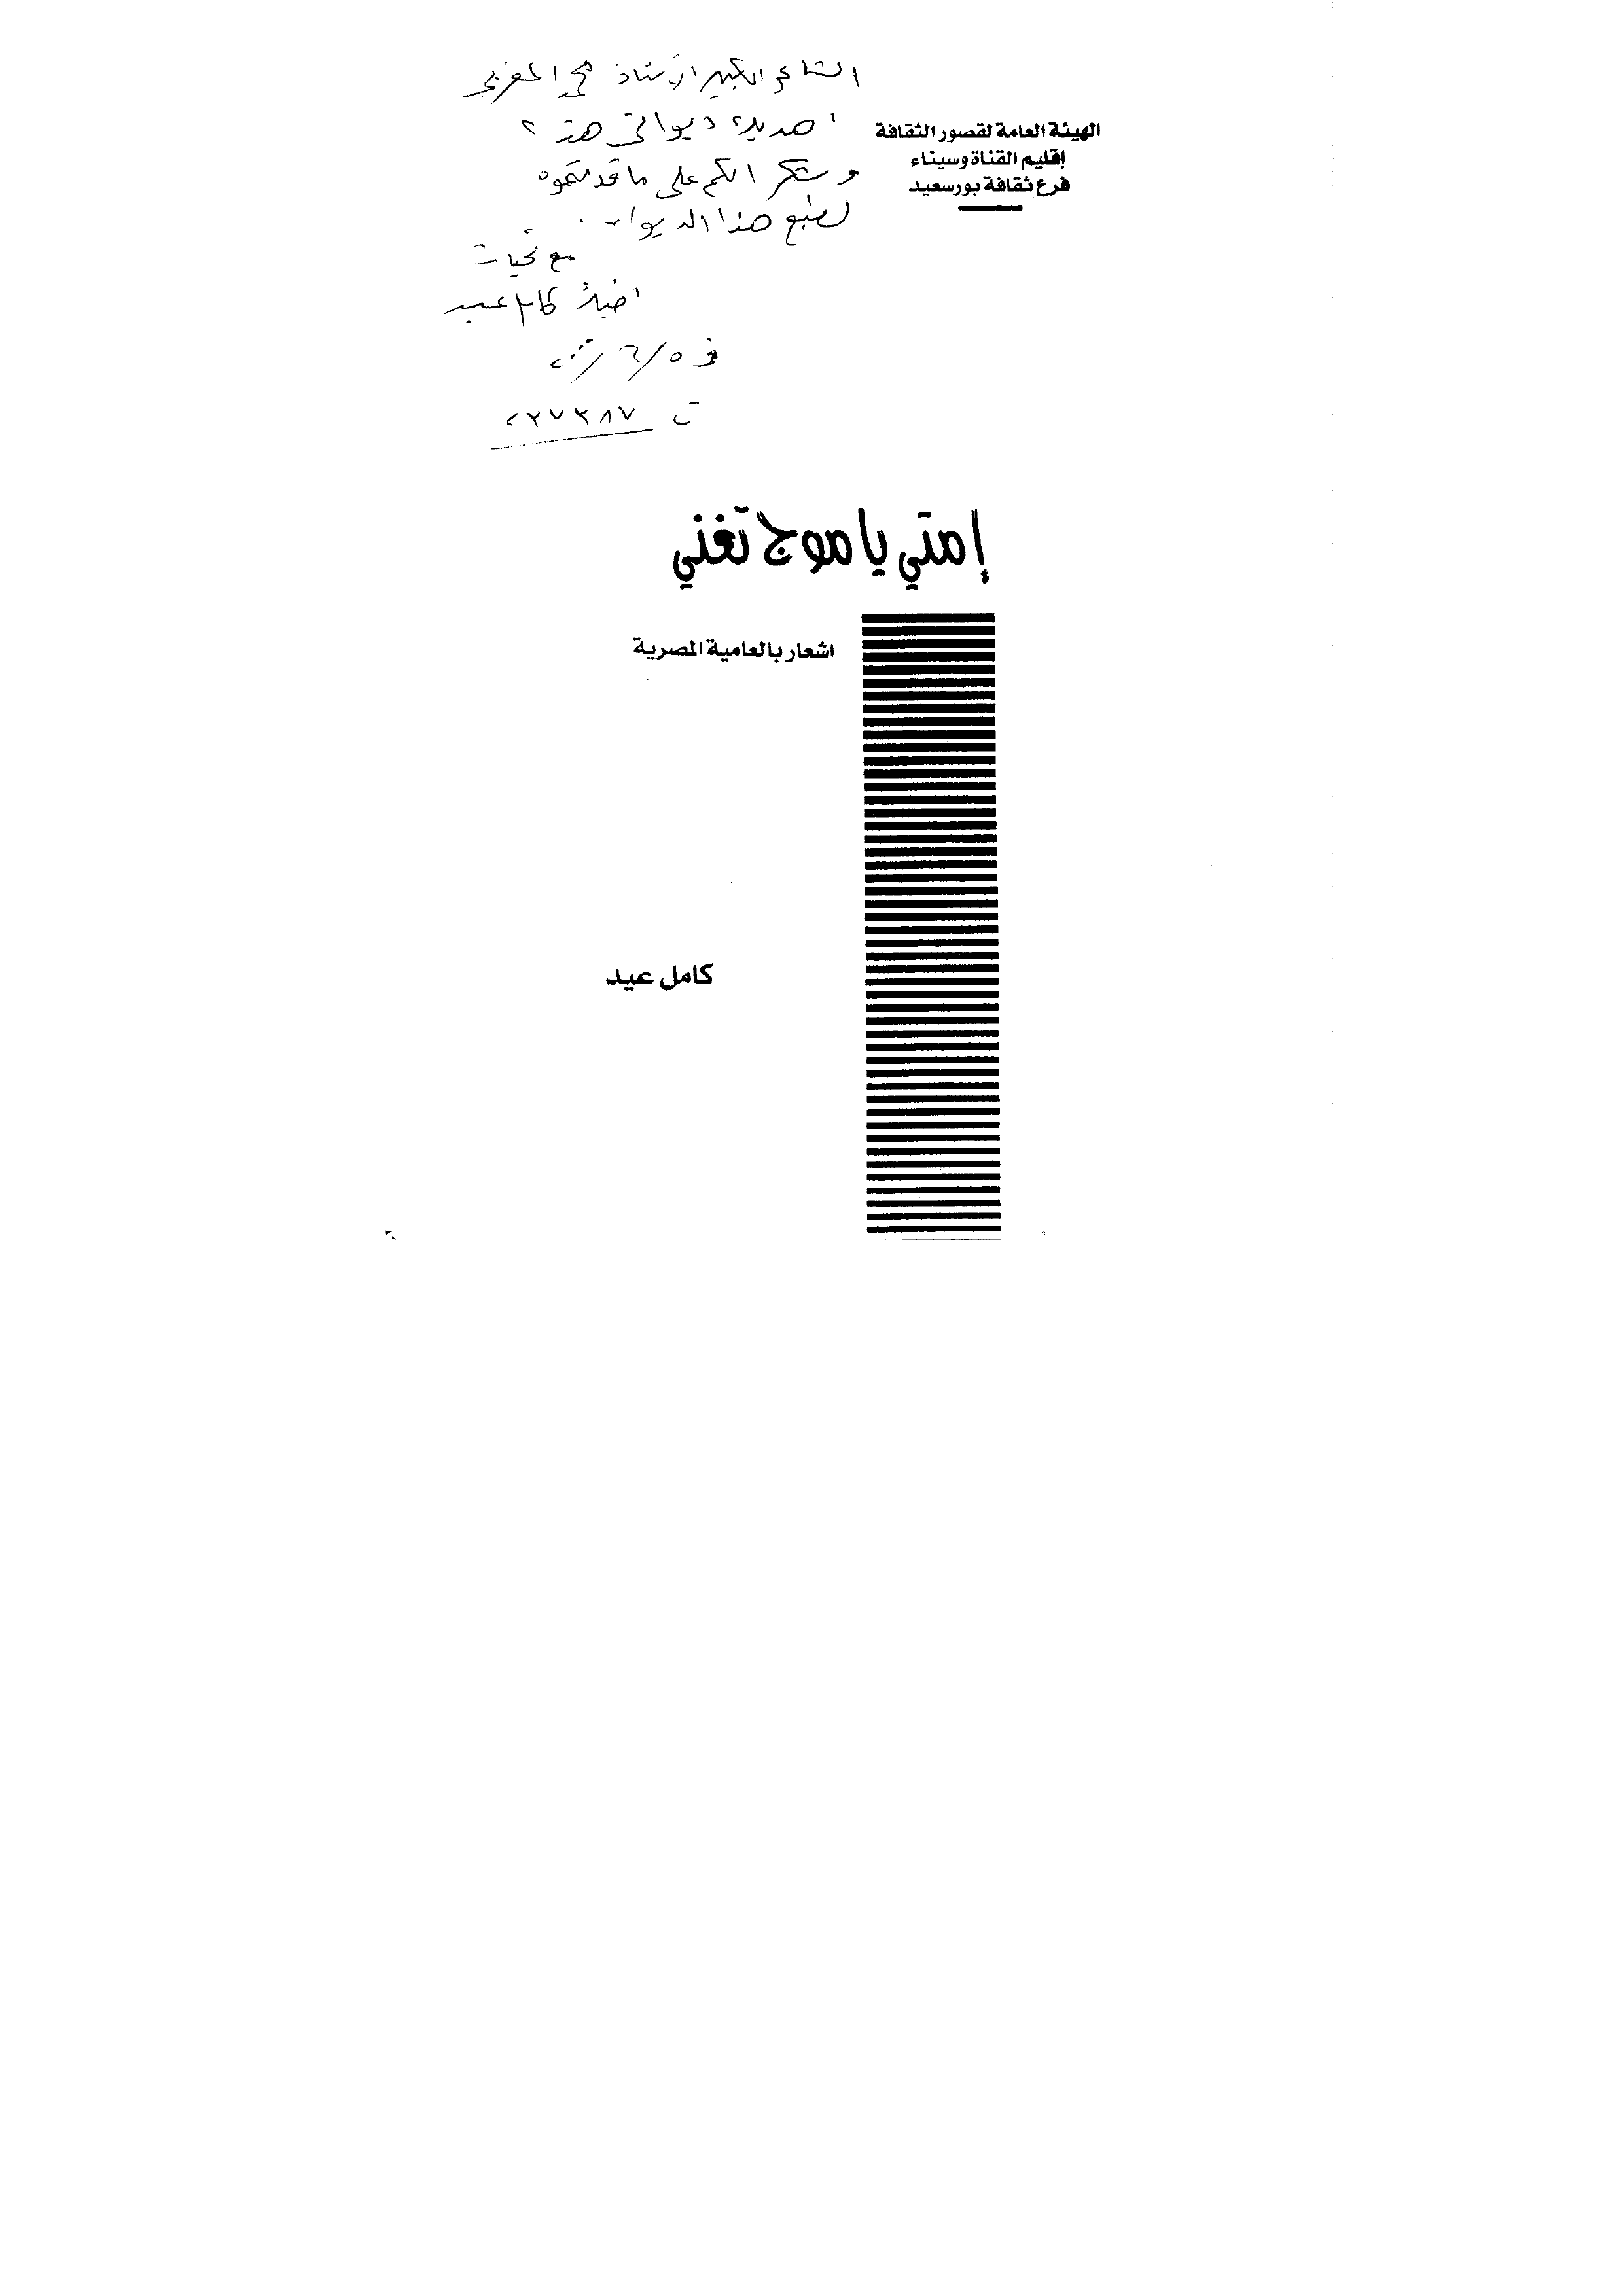 الشاعر الكبير الأستاذ محمد المغربى
اهديك ديوانى هذا
وشكرا لكم على ما قدمتموه
لطبع هذا الديوان.
مع تحيات
اخيك كامل عيد
فى ٥/٦/٢٠٠٠
ت ٢٣٧٣٨٧
الهيئة العامة لقصور الثقافة
إقليم القناة وسيناء
فرع ثقافة بورسعيد
إمتي يا موج تغني
اشعار بالعامية المصرية
كامل عيد